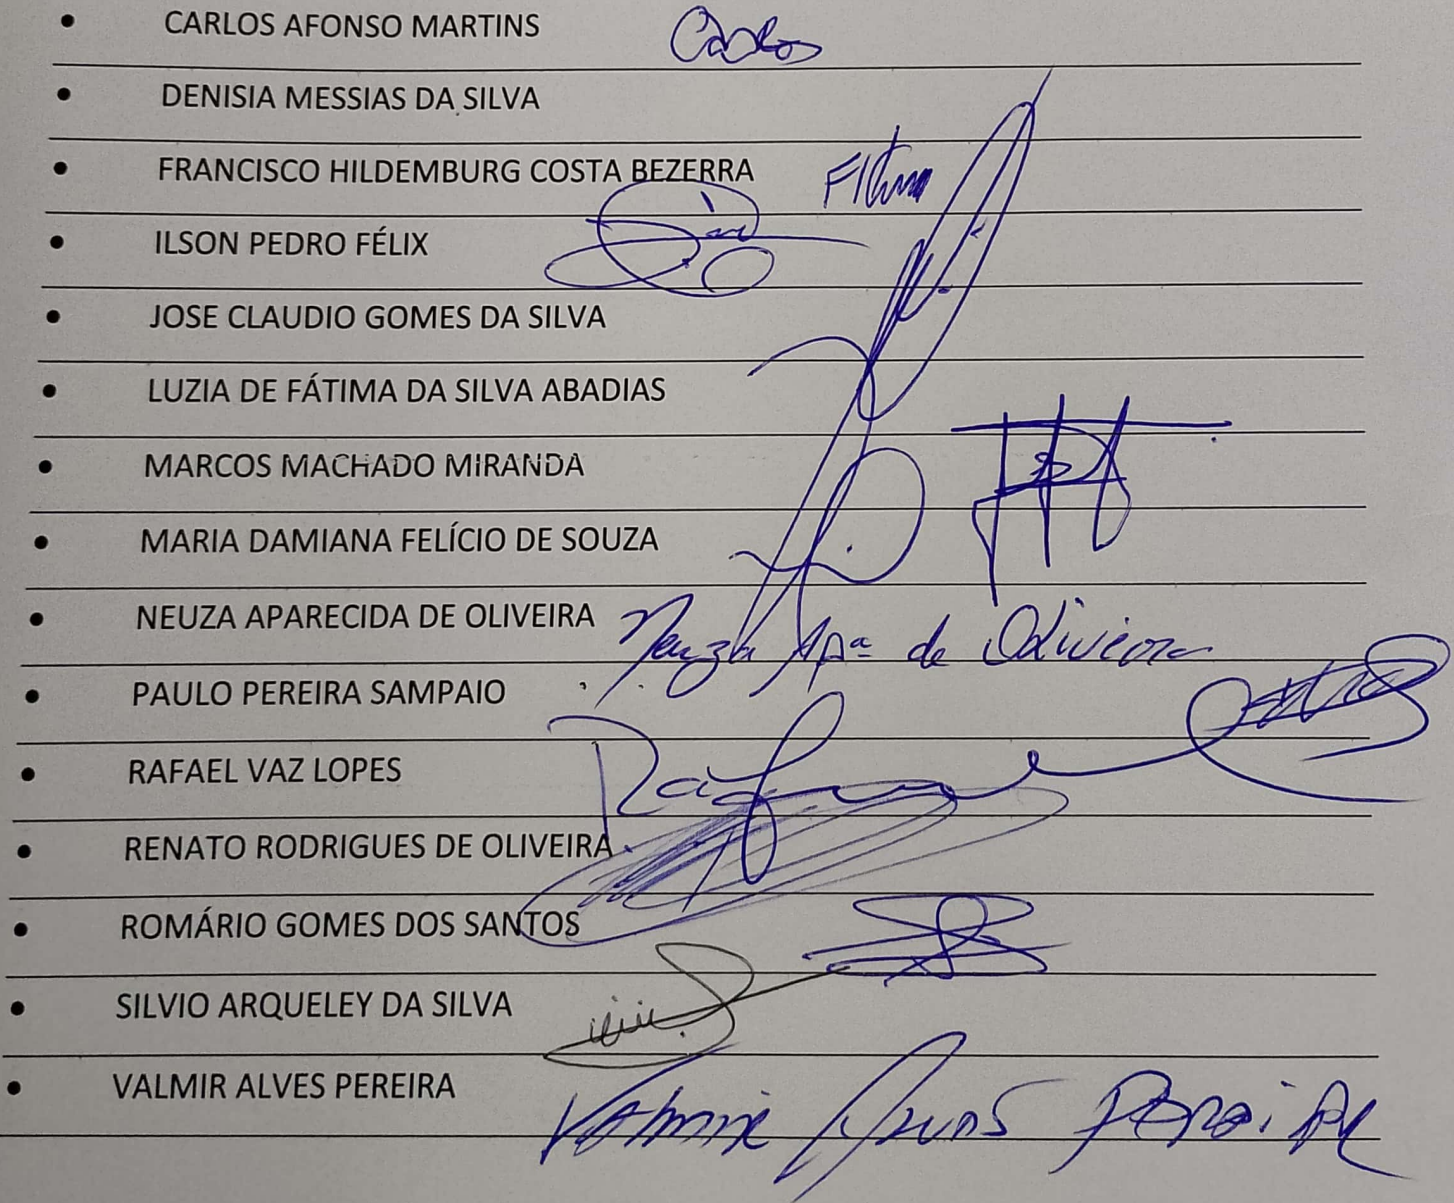 • CARLOS AFONSO MARTINS Carlos
• DENISIA MESSIAS DA SILVA
• FRANCISCO HILDEMBURG COSTA BEZERRA
• ILSON PEDRO FÉLIX
• JOSE CLAUDIO GOMES DA SILVA
• LUZIA DE FÁTIMA DA SILVA ABADIAS
• MARCOS MACHADO MIRANDA
• MARIA DAMIANA FELÍCIO DE SOUZA
• NEUZA APARECIDA DE OLIVEIRA Neuza Apª de Oliveira
• PAULO PEREIRA SAMPAIO
• RAFAEL VAZ LOPES
• RENATO RODRIGUES DE OLIVEIRA
• ROMÁRIO GOMES DOS SANTOS
• SILVIO ARQUELEY DA SILVA
• VALMIR ALVES PEREIRA Valmir Alves Pereira